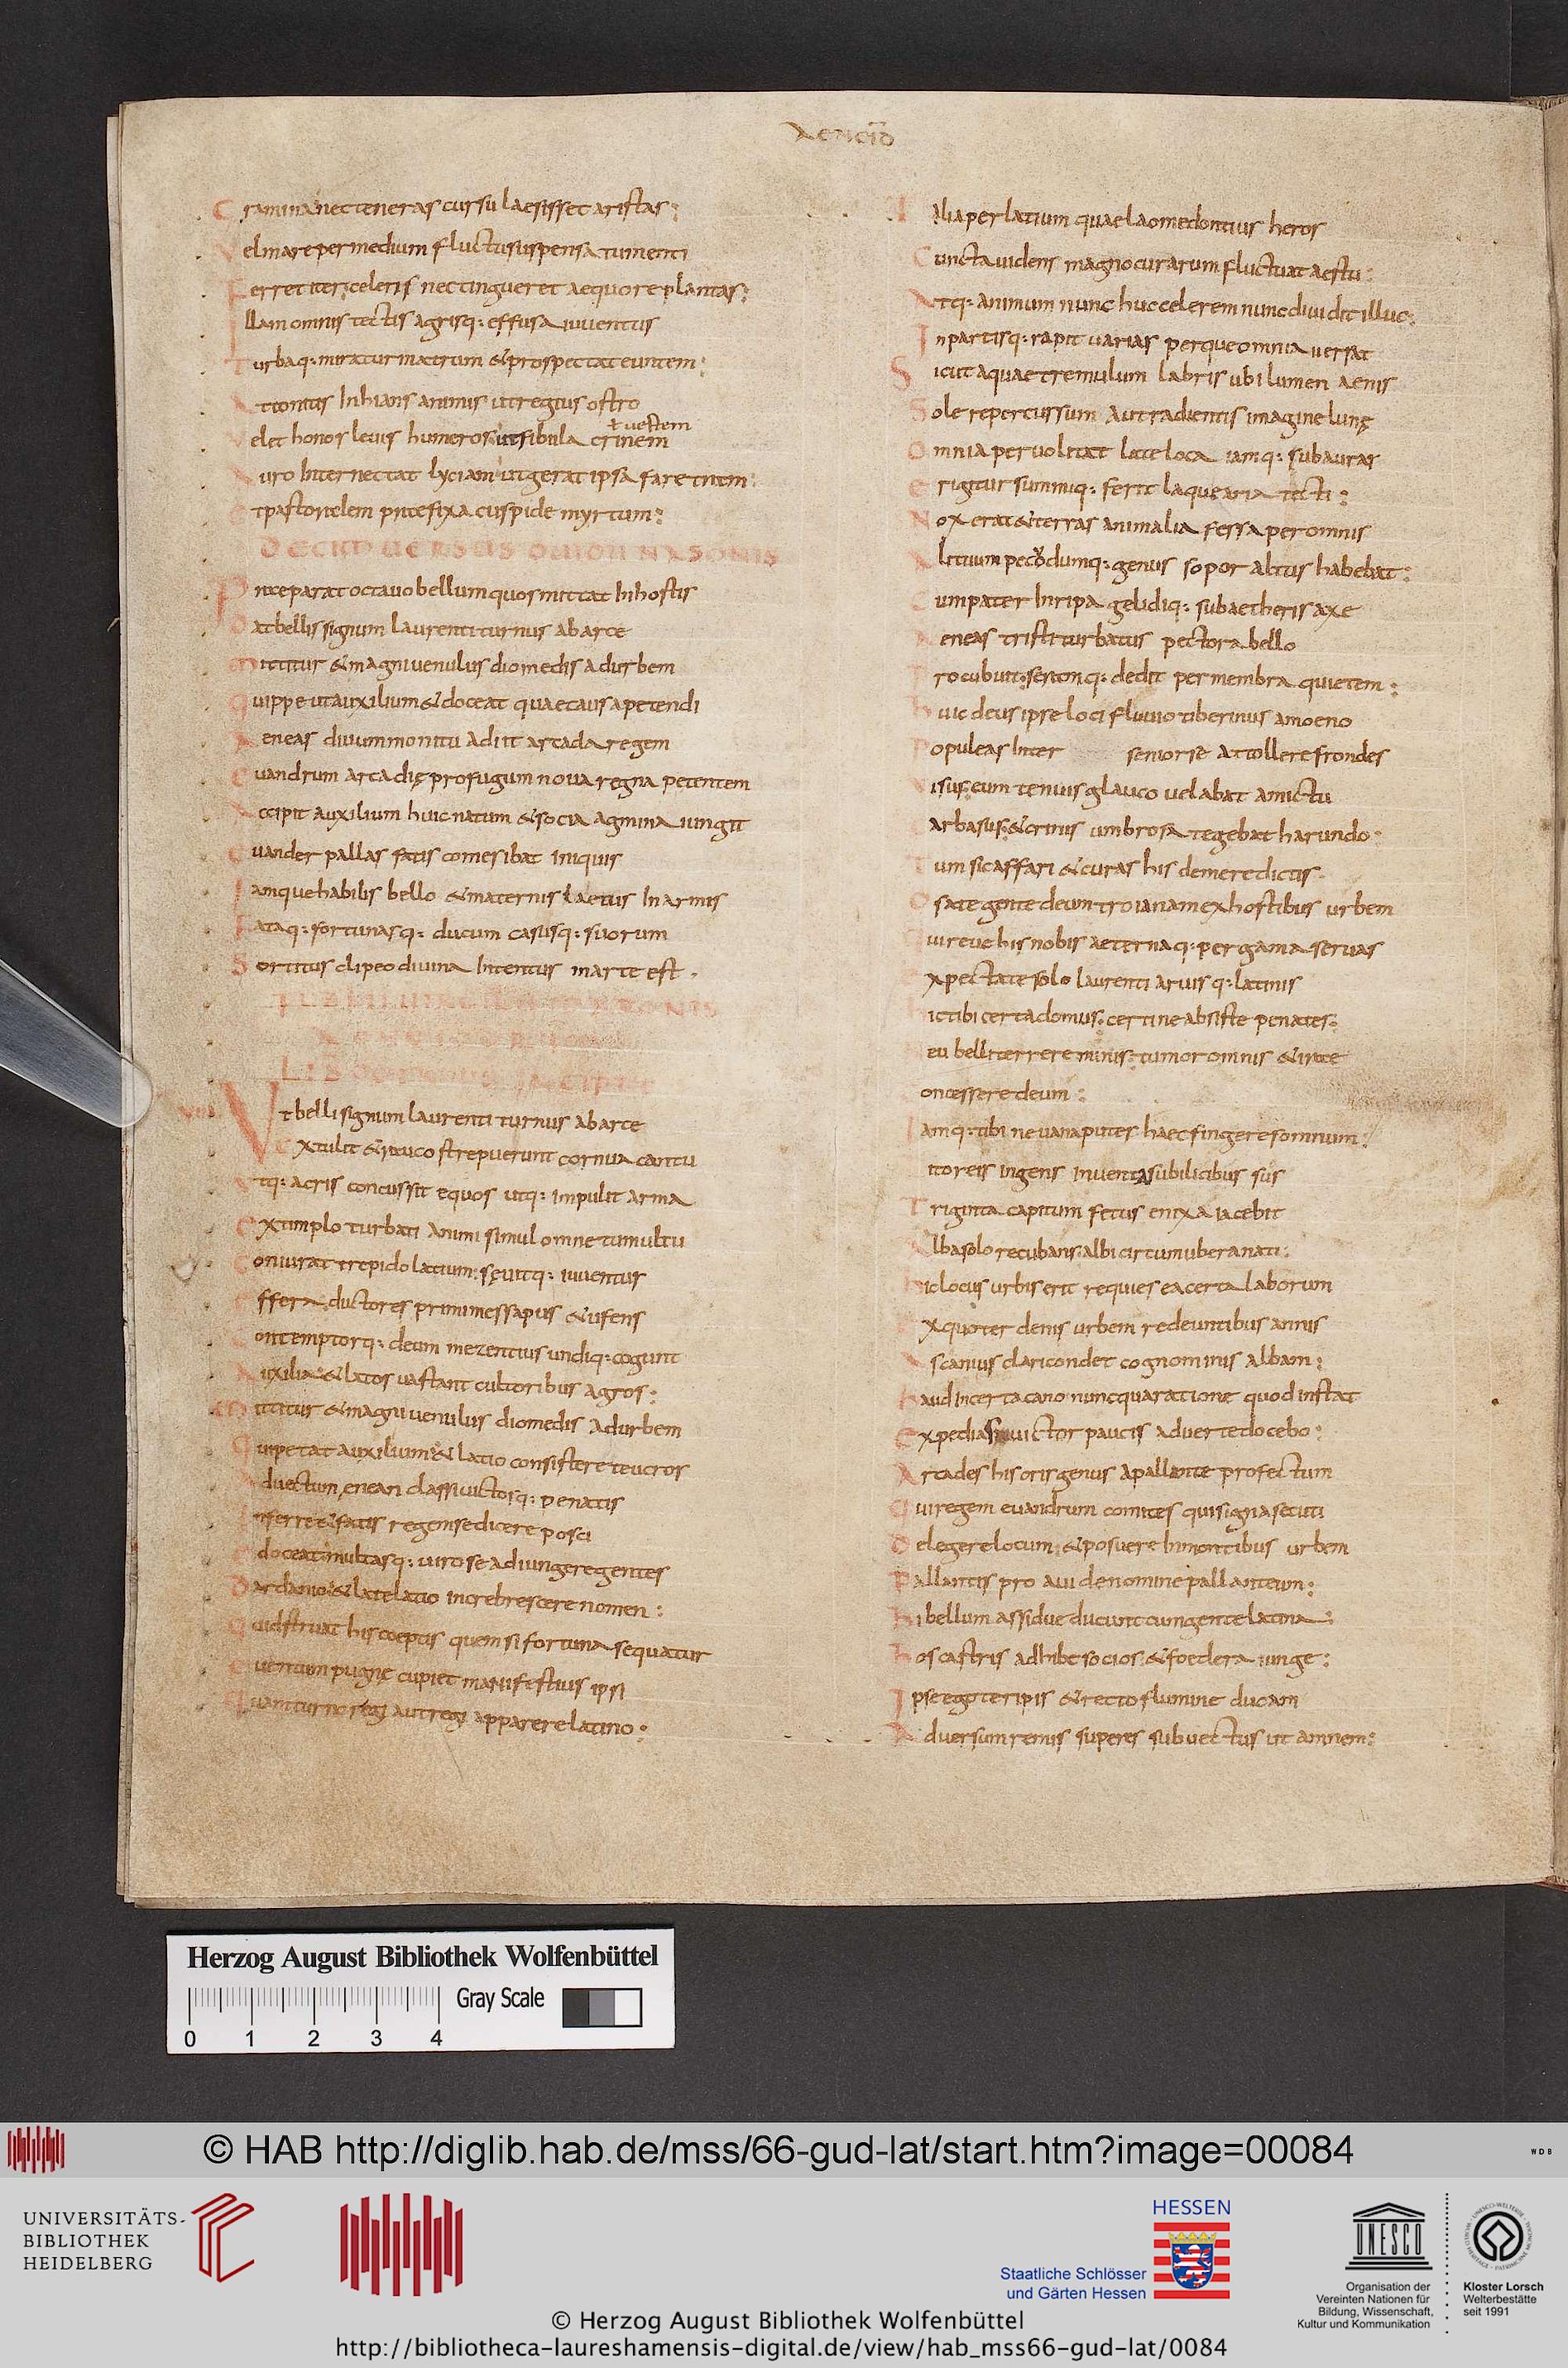 AENEID
Gramina nec teneras cursu laesisset aristas:
Vel mare per medium fluctu suspensa tumenti
Ferret iter celeris nec tingueret aequore plantas:
Illam omnis tectis agrisq: effusa iuuentus
Turbaq: miratur matrum & prospectat euntem:
Attonitis Inhians animis ut regius ostro
ł uestem
Velet honos leuis humeros ut fibula crinem
Auro Internectat lyciam ut gerat ipsa faretram:
Et pastoralem praefixa cuspide myrtum:
DECEM VERSUS OVIDII NASONIS
Praeparat octauo bellum quos mittat In hostis
Dat belli signum laurenti turnus ab arce
Mittitur & magni uenulus diomedis ad urbem
Quippe ut auxilium & doceat quae causa petendi
Aeneas diuum monitu Adiit arcada regem
Euandrum arcadię profugum noua regna petentem
Accipit auxilium huic natum & socia agmina iungit
Euander pallas fatis comes ibat iniquis
Iamque habilis bello & maternis laetus In armis
Fataq: fortunasq: ducum casusq: suorum
Sortitus clipeo diuina Intentus marte est.
LIB INCIPIT
VIII
Vt belli signum laurenti turnus ab arce
Extulit & rauco strepuerunt cornua cantu
Vtq: acris concussit equos utq: impulit arma
Extimplo turbati Animi simul omne tumultu
Coniurat trepido latium: sęuitq: iuuentus
Effera ductores primi messapus & ufens
Contemptorq: deum mezentius undiq: cogunt
Auxilia & latos uastant cultoribus agros:
Mittitur & magni uenulus diomedis Ad urbem
Qui petat Auxilium & latio consistere teucros
Aduectum enean classi uictosq: penatis
Inferre & fatis regem se dicere posci
Edoceat multasq: uiro se adiungere gentes
Dardanio & late latio increbrescere nomen:
Quid struat his coeptis quem si fortuna sequatur
Euentum pugnę cupiet manifestius ipsi
Quam turno regi aut regi apparere latino:
Talia per latium quae laomedontius heros
Cuncta uidens magno curarum fluctuat aestu:
Atq: animum nunc huc celerem nunc diuidit illuc:
In partisq: rapit uarias perque omnia uersat
Sicut aquae tremulum labris ubi lumen aenis
Sole repercussum Aut radientis imagine lunę
Omnia peruolitat late loca iamq: sub auras
Erigitur summiq: ferit laquearia tecti:
Nox erat & terras animalia fessa per omnis
Alituum pecodumq: genus sopor altus habebat:
Cum pater In ripa gelidiq: sub aetheris axe
Aeneas tristi turbatus pectora bello
Procubuit: seramq: dedit per membra quietem:
Huic deus ipse loci fluuio tiberinus amoeno
Populeas Inter senior se Attollere frondes
Visus: eum tenuis glauco uelabat amictu
Carbasus: & crinis umbrosa tegebat harundo:
Tum sic affari & curas his demere dictis.
O sate gente deum troianam ex hostibus urbem
Qui reuehis nobis aeternaq: pergama seruas
Expectate solo laurenti aruisq: latinis
Hic tibi certa domus: certi ne absiste penates:
Neu belli terrere minis: tumor omnis & irae
Concessere deum:
Iamq: tibi ne uana putes haec fingere somnum:
Litoreis ingens inuenta sub ilicibus sus
Triginta capitum fetus enixa iacebit
Alba solo recubans: albi circum ubera nati:
Hic locus urbis erit requies ea certa laborum
Ex quo ter denis urbem redeuntibus annis
Ascanius clari condet cognominis albam:
Haud Incerta cano nunc qua ratione quod instat
Expedias uictor paucis aduerte docebo:
Arcades his oris genus Apallante profectum
Qui regem euandrum comites qui signa secuti
Delegere locum & posuere In montibus urbem
Pallantis pro aui de nomine pallanteum:
Hi bellum assidue ducunt cum gente latina:
Hos castris adhibe socios: & foedera iunge:
Ipse ego te ripis & recto flumine ducam
Aduersum remis superes subuectus ut amnem:
Herzog August Bibliothek Wolfenbüttel
Gray Scale
0 1 2 3 4
© HAB http://diglib.hab.de/mss/66-gud-lat/start.htm?image=00084
WDB
UNIVERSITÄTS-
BIBLIOTHEK
HEIDELBERG
HESSEN
Staatliche Schlösser
und Gärten Hessen
UNESCO
Organisation der
Vereinten Nationen für
Bildung, Wissenschaft,
Kultur und Kommunikation
Kloster Lorsch
Welterbestätte
seit 1991
© Herzog August Bibliothek Wolfenbüttel
http://bibliotheca-laureshamensis-digital.de/view/hab_mss66-gud-lat/0084